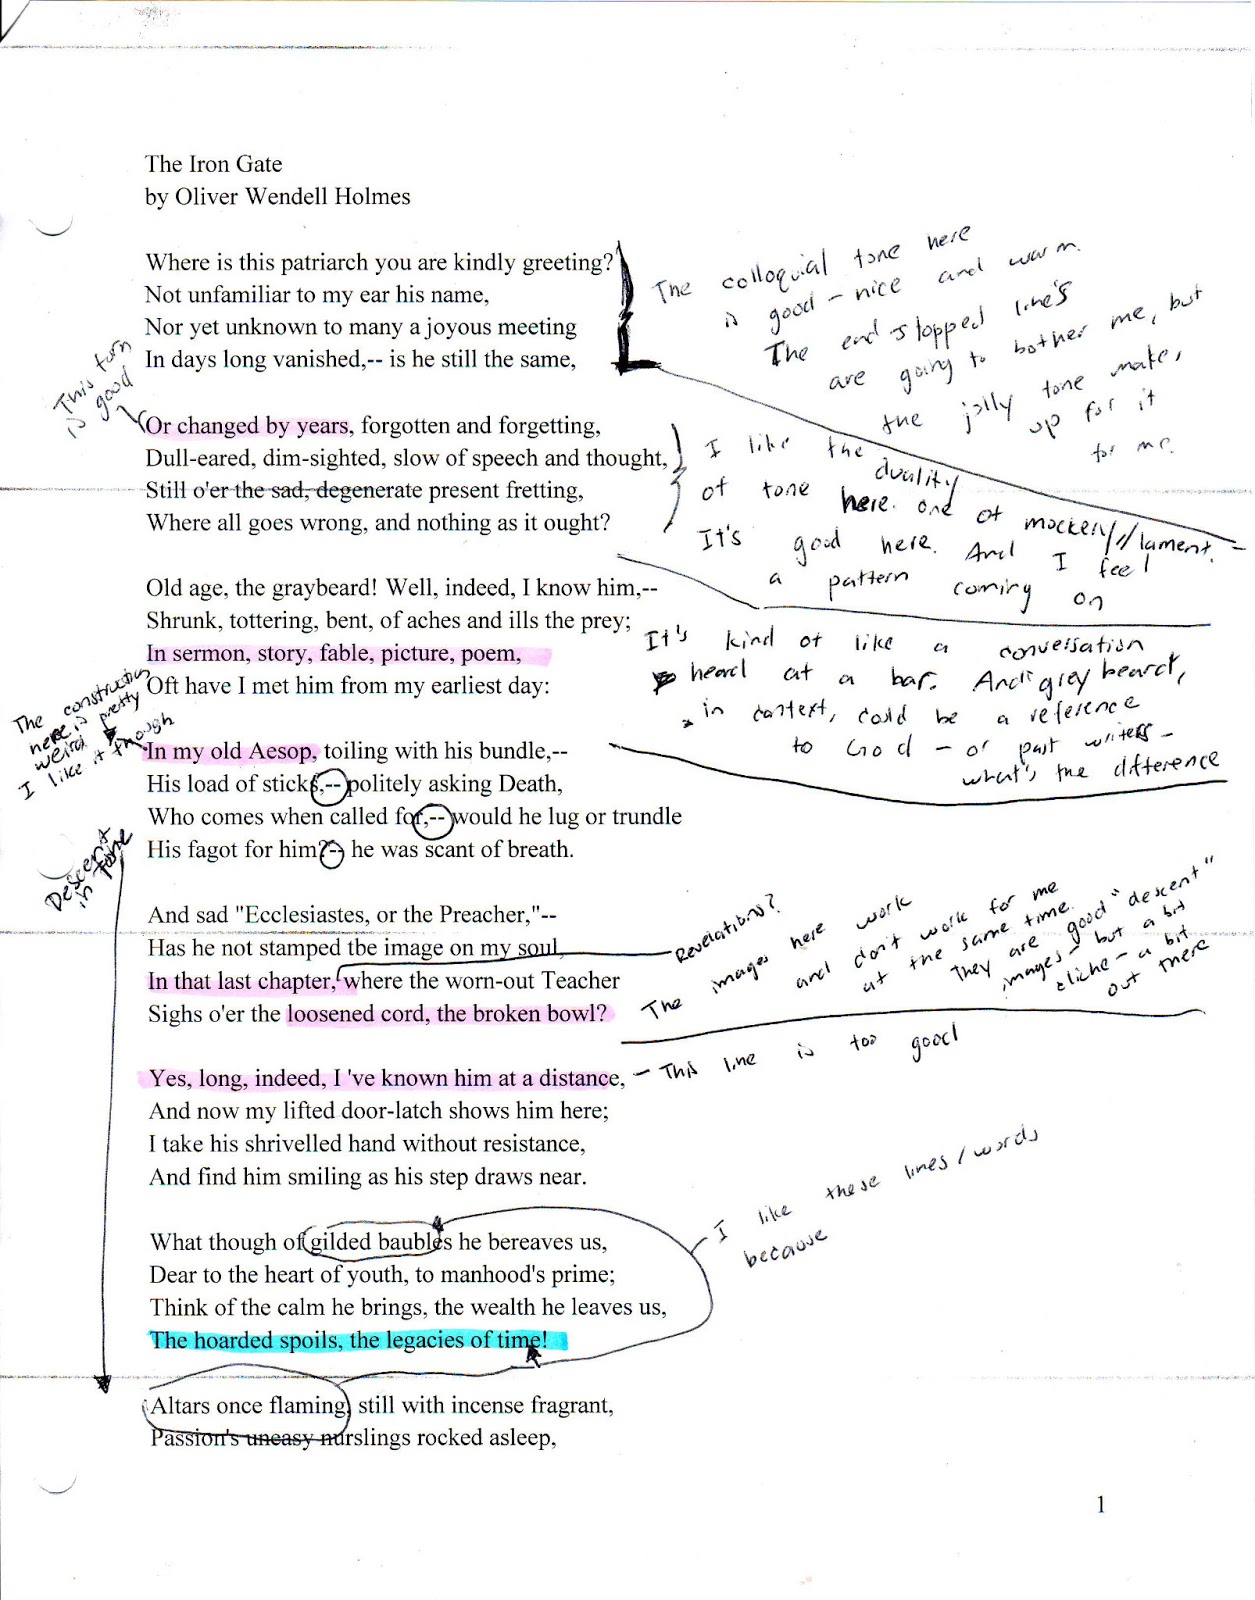 The Iron Gate
by Oliver Wendell Holmes
Where is this patriarch you are kindly greeting?
Not unfamiliar to my ear his name,
Nor yet unknown to many a joyous meeting
In days long vanished,-- is he still the same,
The colloquial tone here
is good - nice and warm.
The end stopped line's
are going to bother me, but
the jolly tone make,
up for it
for me.
This turn
is good
Or changed by years, forgotten and forgetting,
Dull-eared, dim-sighted, slow of speech and thought,
Still o'er the sad, degenerate present fretting,
Where all goes wrong, and nothing as it ought?
I like the duality
of tone here. one of mockery//lament.
It's good here. And I feel
a pattern coming on
Old age, the graybeard! Well, indeed, I know him,--
Shrunk, tottering, bent, of aches and ills the prey;
In sermon, story, fable, picture, poem,
Oft have I met him from my earliest day:
It's kind of like a conversation
heard at a bar. And "grey beard,
in context, could be a reference
to God - or past writers -
what's the difference
The construction
here is pretty
weird
I like it though
In my old Aesop, toiling with his bundle,--
His load of sticks,-- politely asking Death,
Who comes when called for,-- would he lug or trundle
His fagot for him?-- he was scant of breath.
Descent
in tone
And sad "Ecclesiastes, or the Preacher,"--
Has he not stamped tbe image on my soul,
In that last chapter, where the worn-out Teacher
Sighs o'er the loosened cord, the broken bowl?
Revelations?
The images here work
and don't work for me
at the same time.
They are good "descent"
images - but a bit
cliche - a bit
out there
Yes, long, indeed, I 've known him at a distance,
- This line is too good
And now my lifted door-latch shows him here;
I take his shrivelled hand without resistance,
And find him smiling as his step draws near.
What though of gilded baubles he bereaves us,
Dear to the heart of youth, to manhood's prime;
Think of the calm he brings, the wealth he leaves us,
The hoarded spoils, the legacies of time!
I like these lines/words
because
Altars once flaming, still with incense fragrant,
Passion's uneasy nurslings rocked asleep,
1